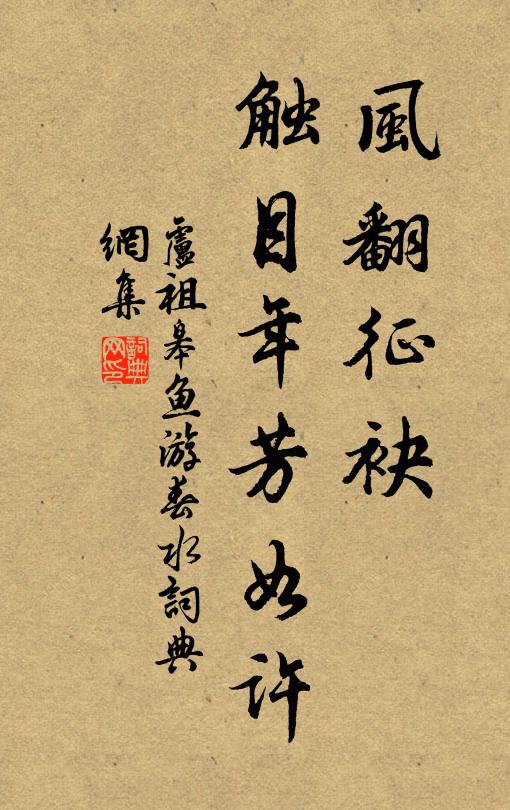 風翻征袂
触目年芳如許
盧祖皋魚游春水詞典
網集
詞典
网印